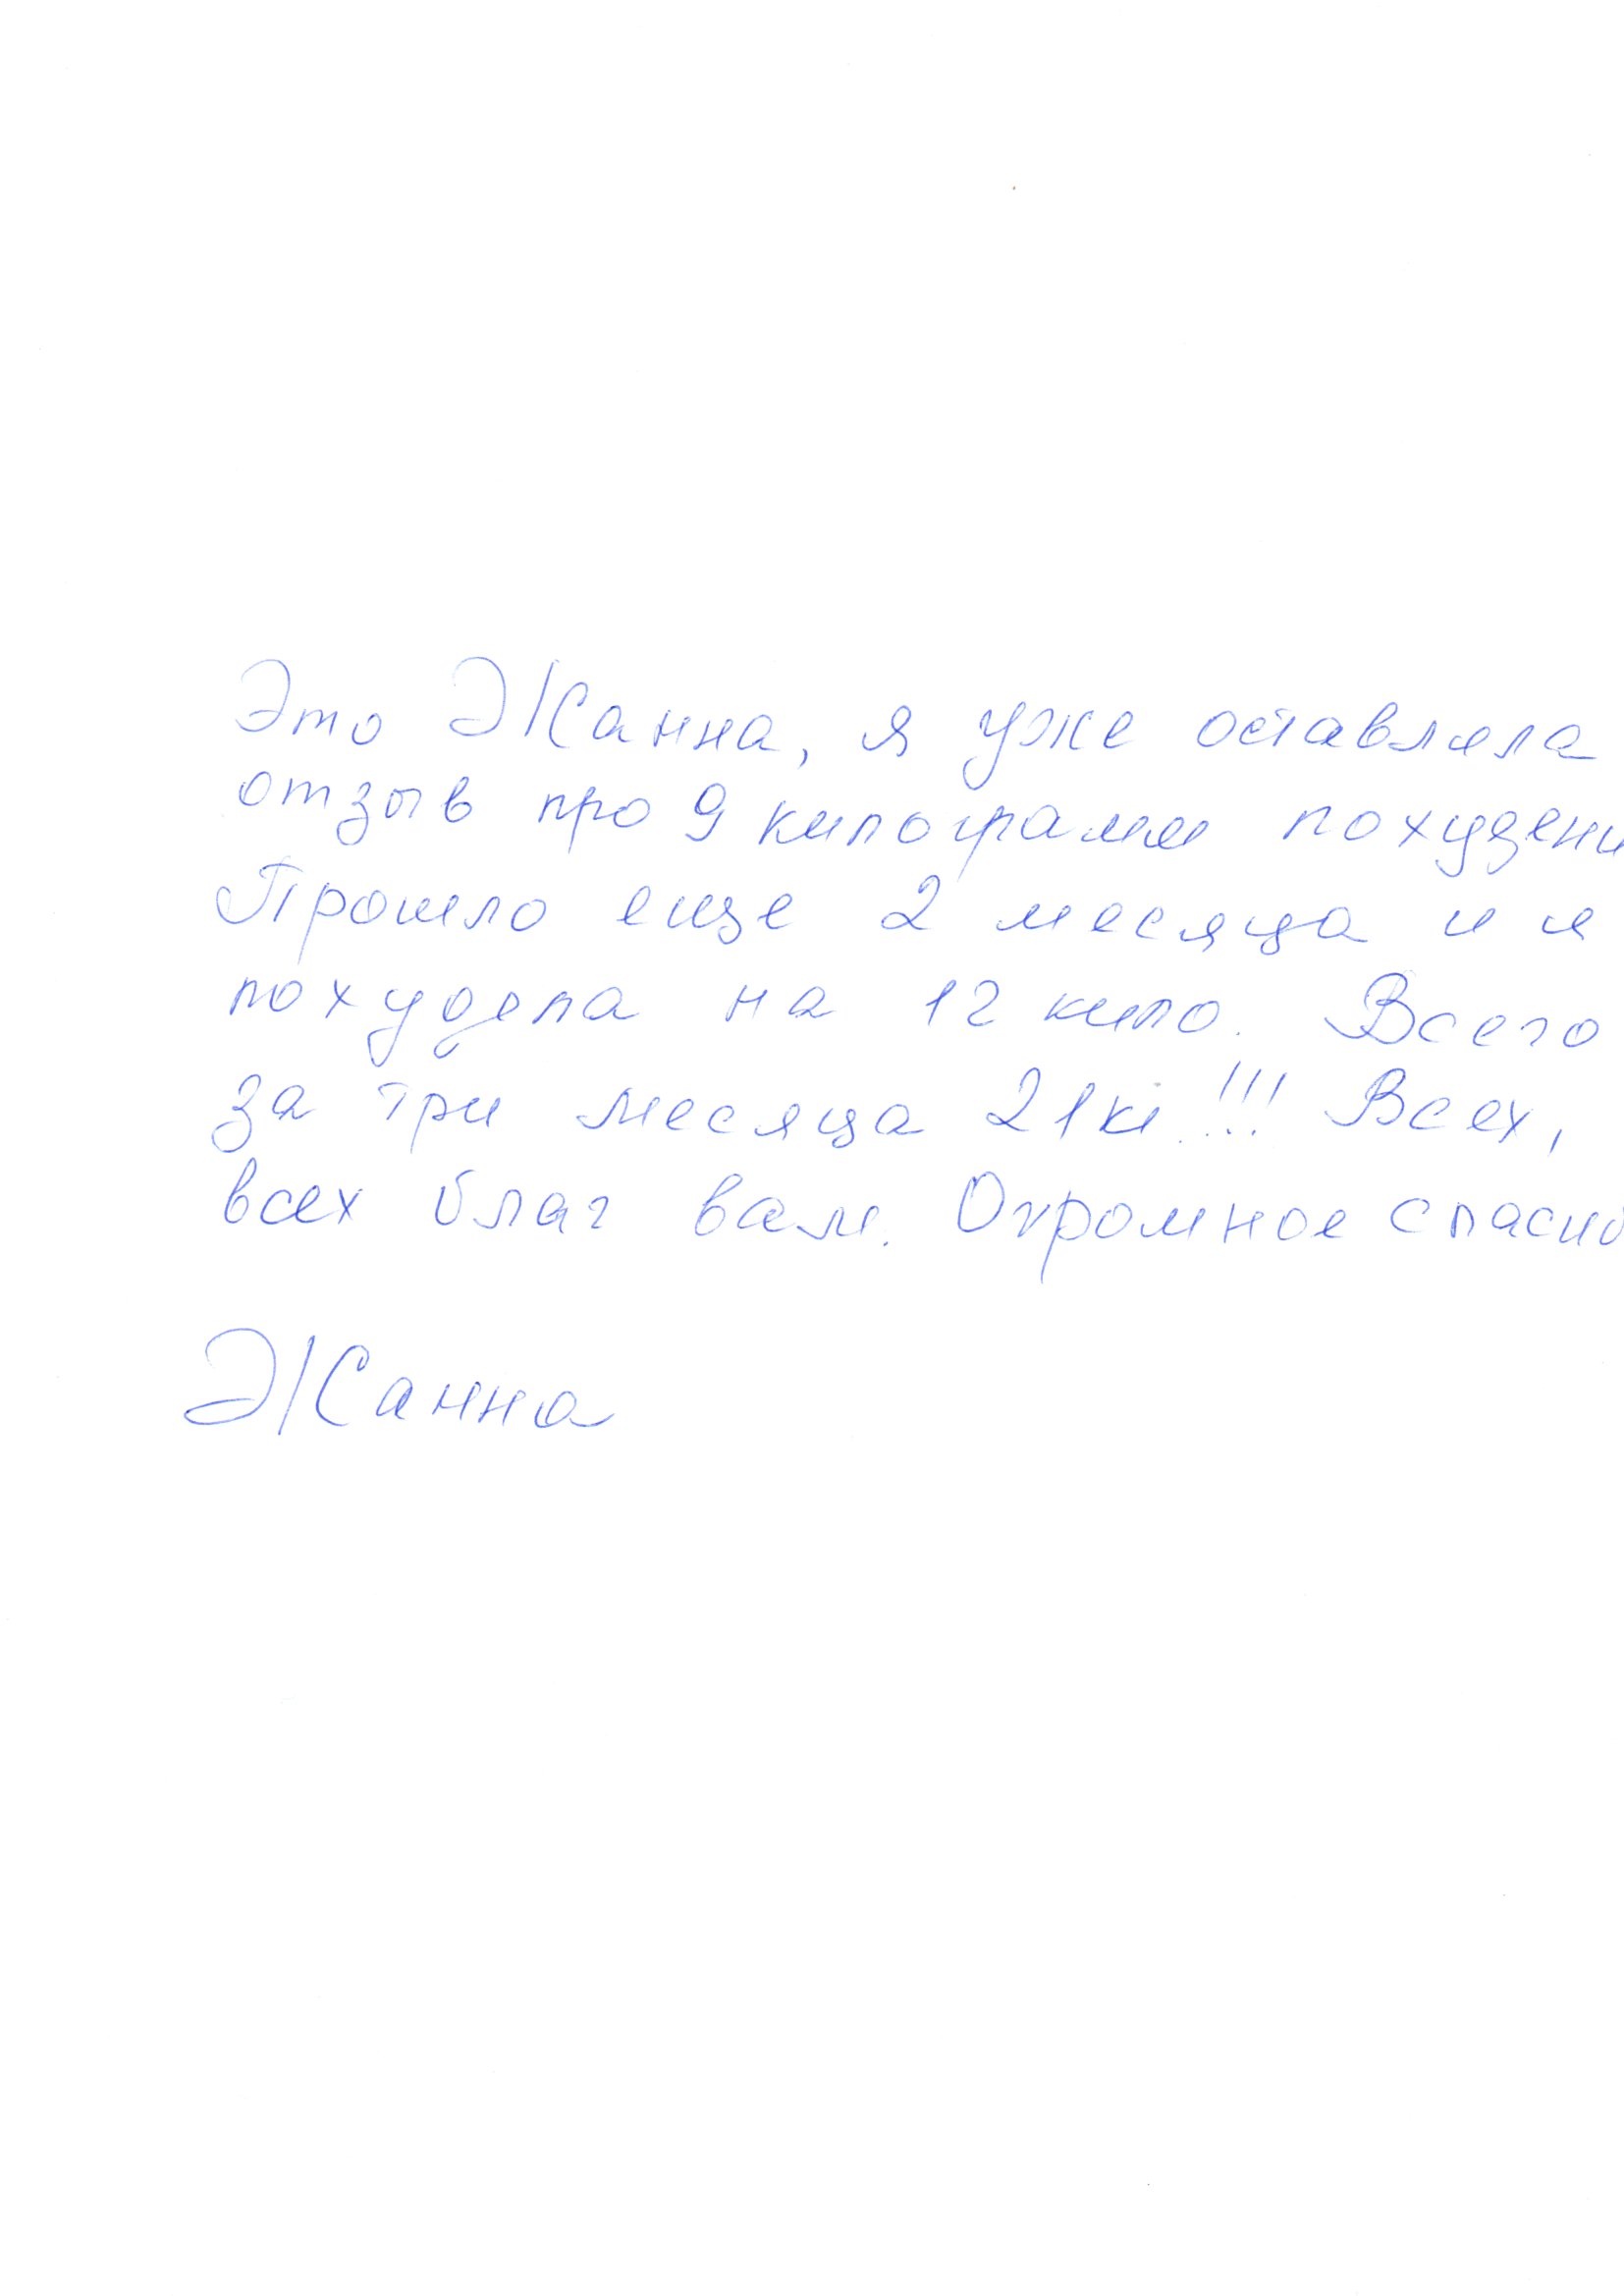 Это Жанна, я уже оставляла
отзыв про 9 килограмм похудени
Прошло еще 2 месяца и я
похудела на 12 кило. Всего
за три месяца 21кг!!! Всех,
всех благ вам. Огромное спасиб
Жанна